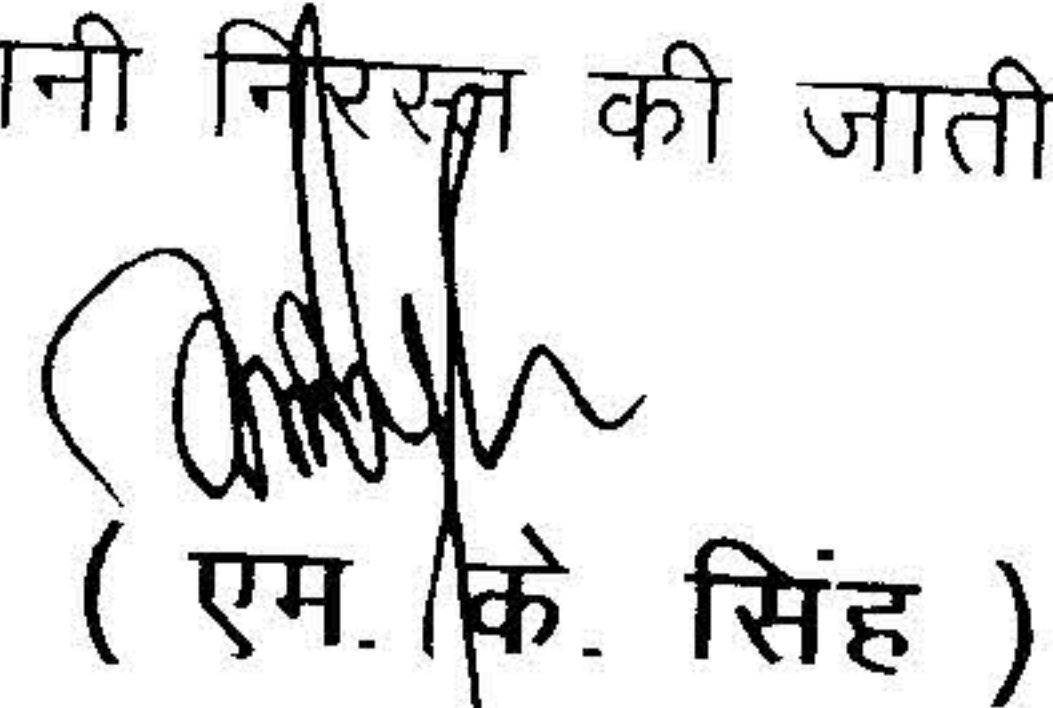 नी निरस्त की जाती
( एम. के. सिंह )